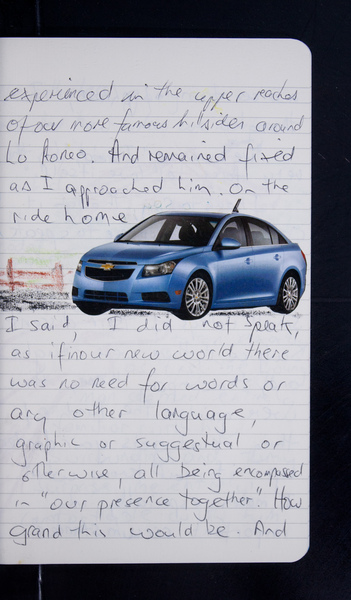 experienced in the upper reaches
of our more famous hillsides around
And remained fixed
as I approached him. On the
ride home
I said, I did not speak,
as if in our new world there
was no need for words or
any other language,
graphic or suggestual or
otherwise, all being encompassed
in "our presence together". How
grand this would be. And